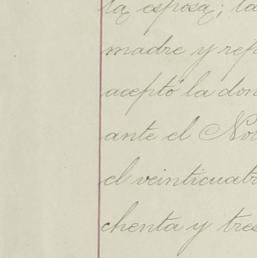 la esposa; la
madre y rep
aceptó la don
ante el No
el veinticuatr
chenta y tres